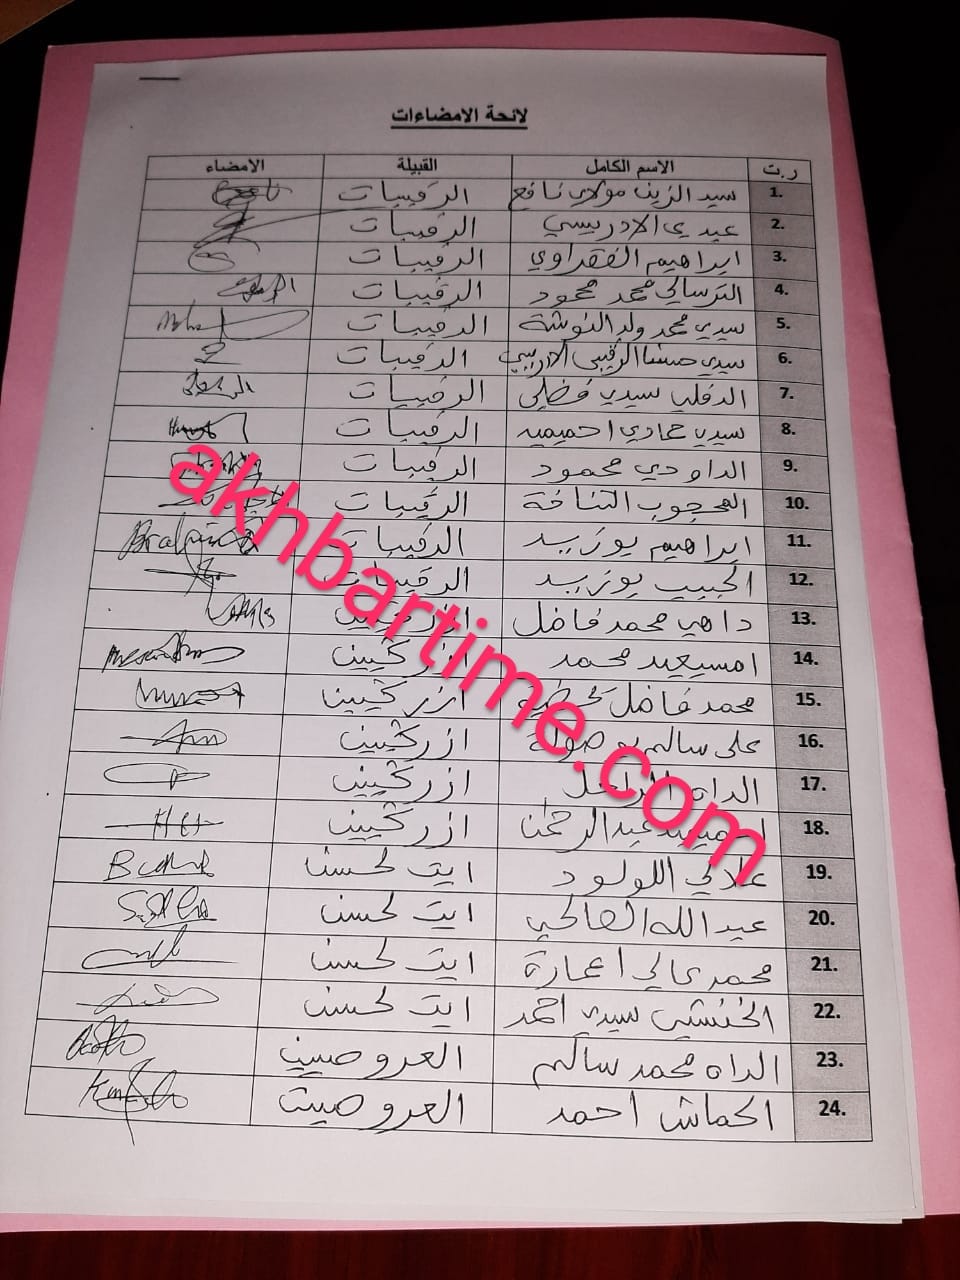 لائحة الامضاءات
ر.ت الاسم الكامل القبيلة الامضاء
1. سيد الزين مولاي نافع الرقيبات
2. عيدي الادريسي الرقيبات
3. ابراهيم الفقراوي الرقيبات
4. التوسالي محمد محمود الرقيبات
5. سيدي محمد ولد النوشة الرقيبات
6. سيدي الرقيبي الادريسي الرقيبات
7. سيدي فضلي الرقيبات
8. سيدي حمادي احميميد الرقيبات
9. الداودي محمود الرقيبات
10. المحجوب الرقيبات
11. ابراهيم بوزيد الرقيبات Brahim
12. الحبيب بوزيد الرقيبات
13. داهي محمد فاضل ازركيين
14. امسيعيد محمد ازركيين
15. محمد فاضل ازركيين
16. علي سالم ازركيين
17. الداه ازركيين
18. عبد الرحمن ازركيين
19. علالي اللولود ايت لحسن
20. عبد الله الصالحي ايت لحسن
21. محمد عالي اعمارة ايت لحسن
22. الخنشي سيدي احمد ايت لحسن
23. الداه محمد سالم العروصيين
24. الحماش احمد العروصيين
akhbartime.com